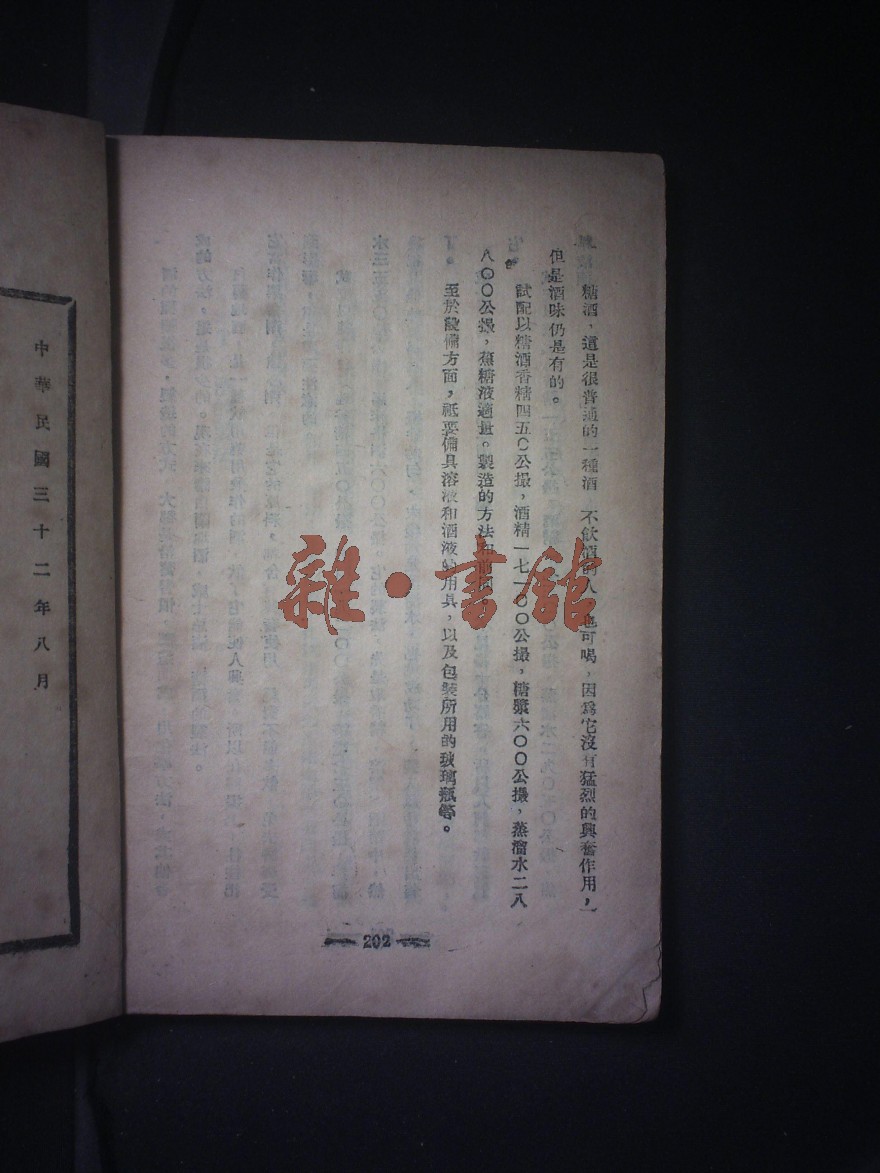 糖酒，這是很普通的一種酒 不飲酒的人 也可喝，因爲它沒有猛烈的興奮作用，
但是酒味仍是有的。
試配以糖酒香精四五〇公撮，酒精一七一〇〇公撮，糖漿六〇〇公撮，蒸溜水二八
八〇〇公撮，蕉糖液適量。製造的方法和前同。
至於設備方面，祗要備具溶液和酒液的用具，以及包裝所用的玻璃瓶等。
202
中華民國三十二年八月
雜·書館